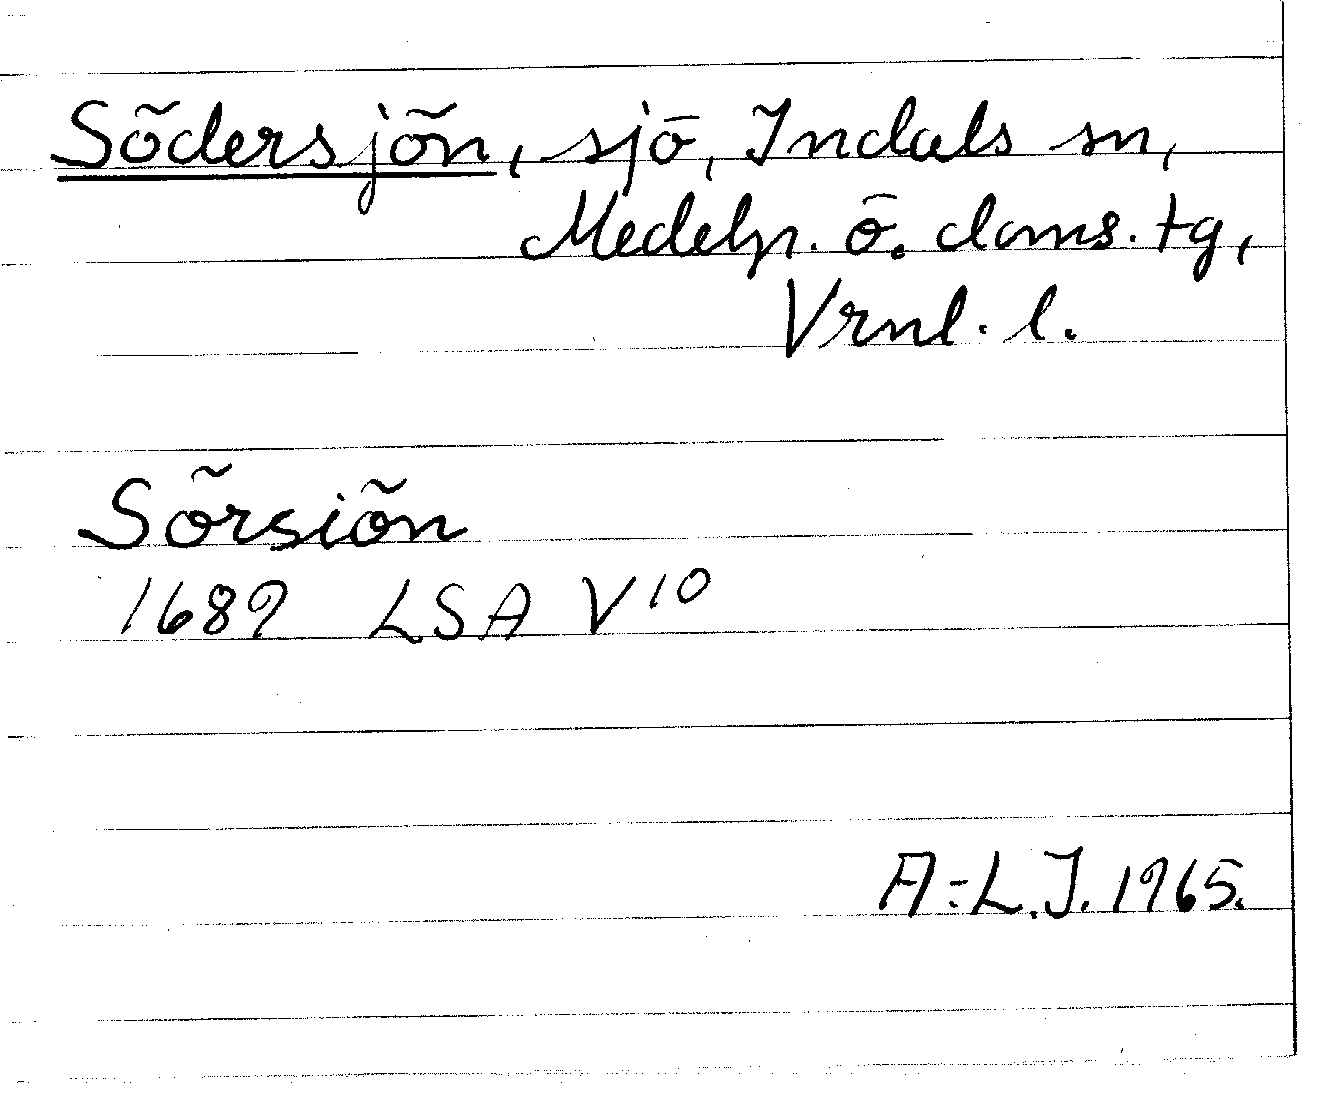 Södersjön, sjö, Indals sn,
Medelp. ö. doms. tg,
Vrnl. l.
Sörsiön
1689 LSA V 10
A-L.J. 1965.